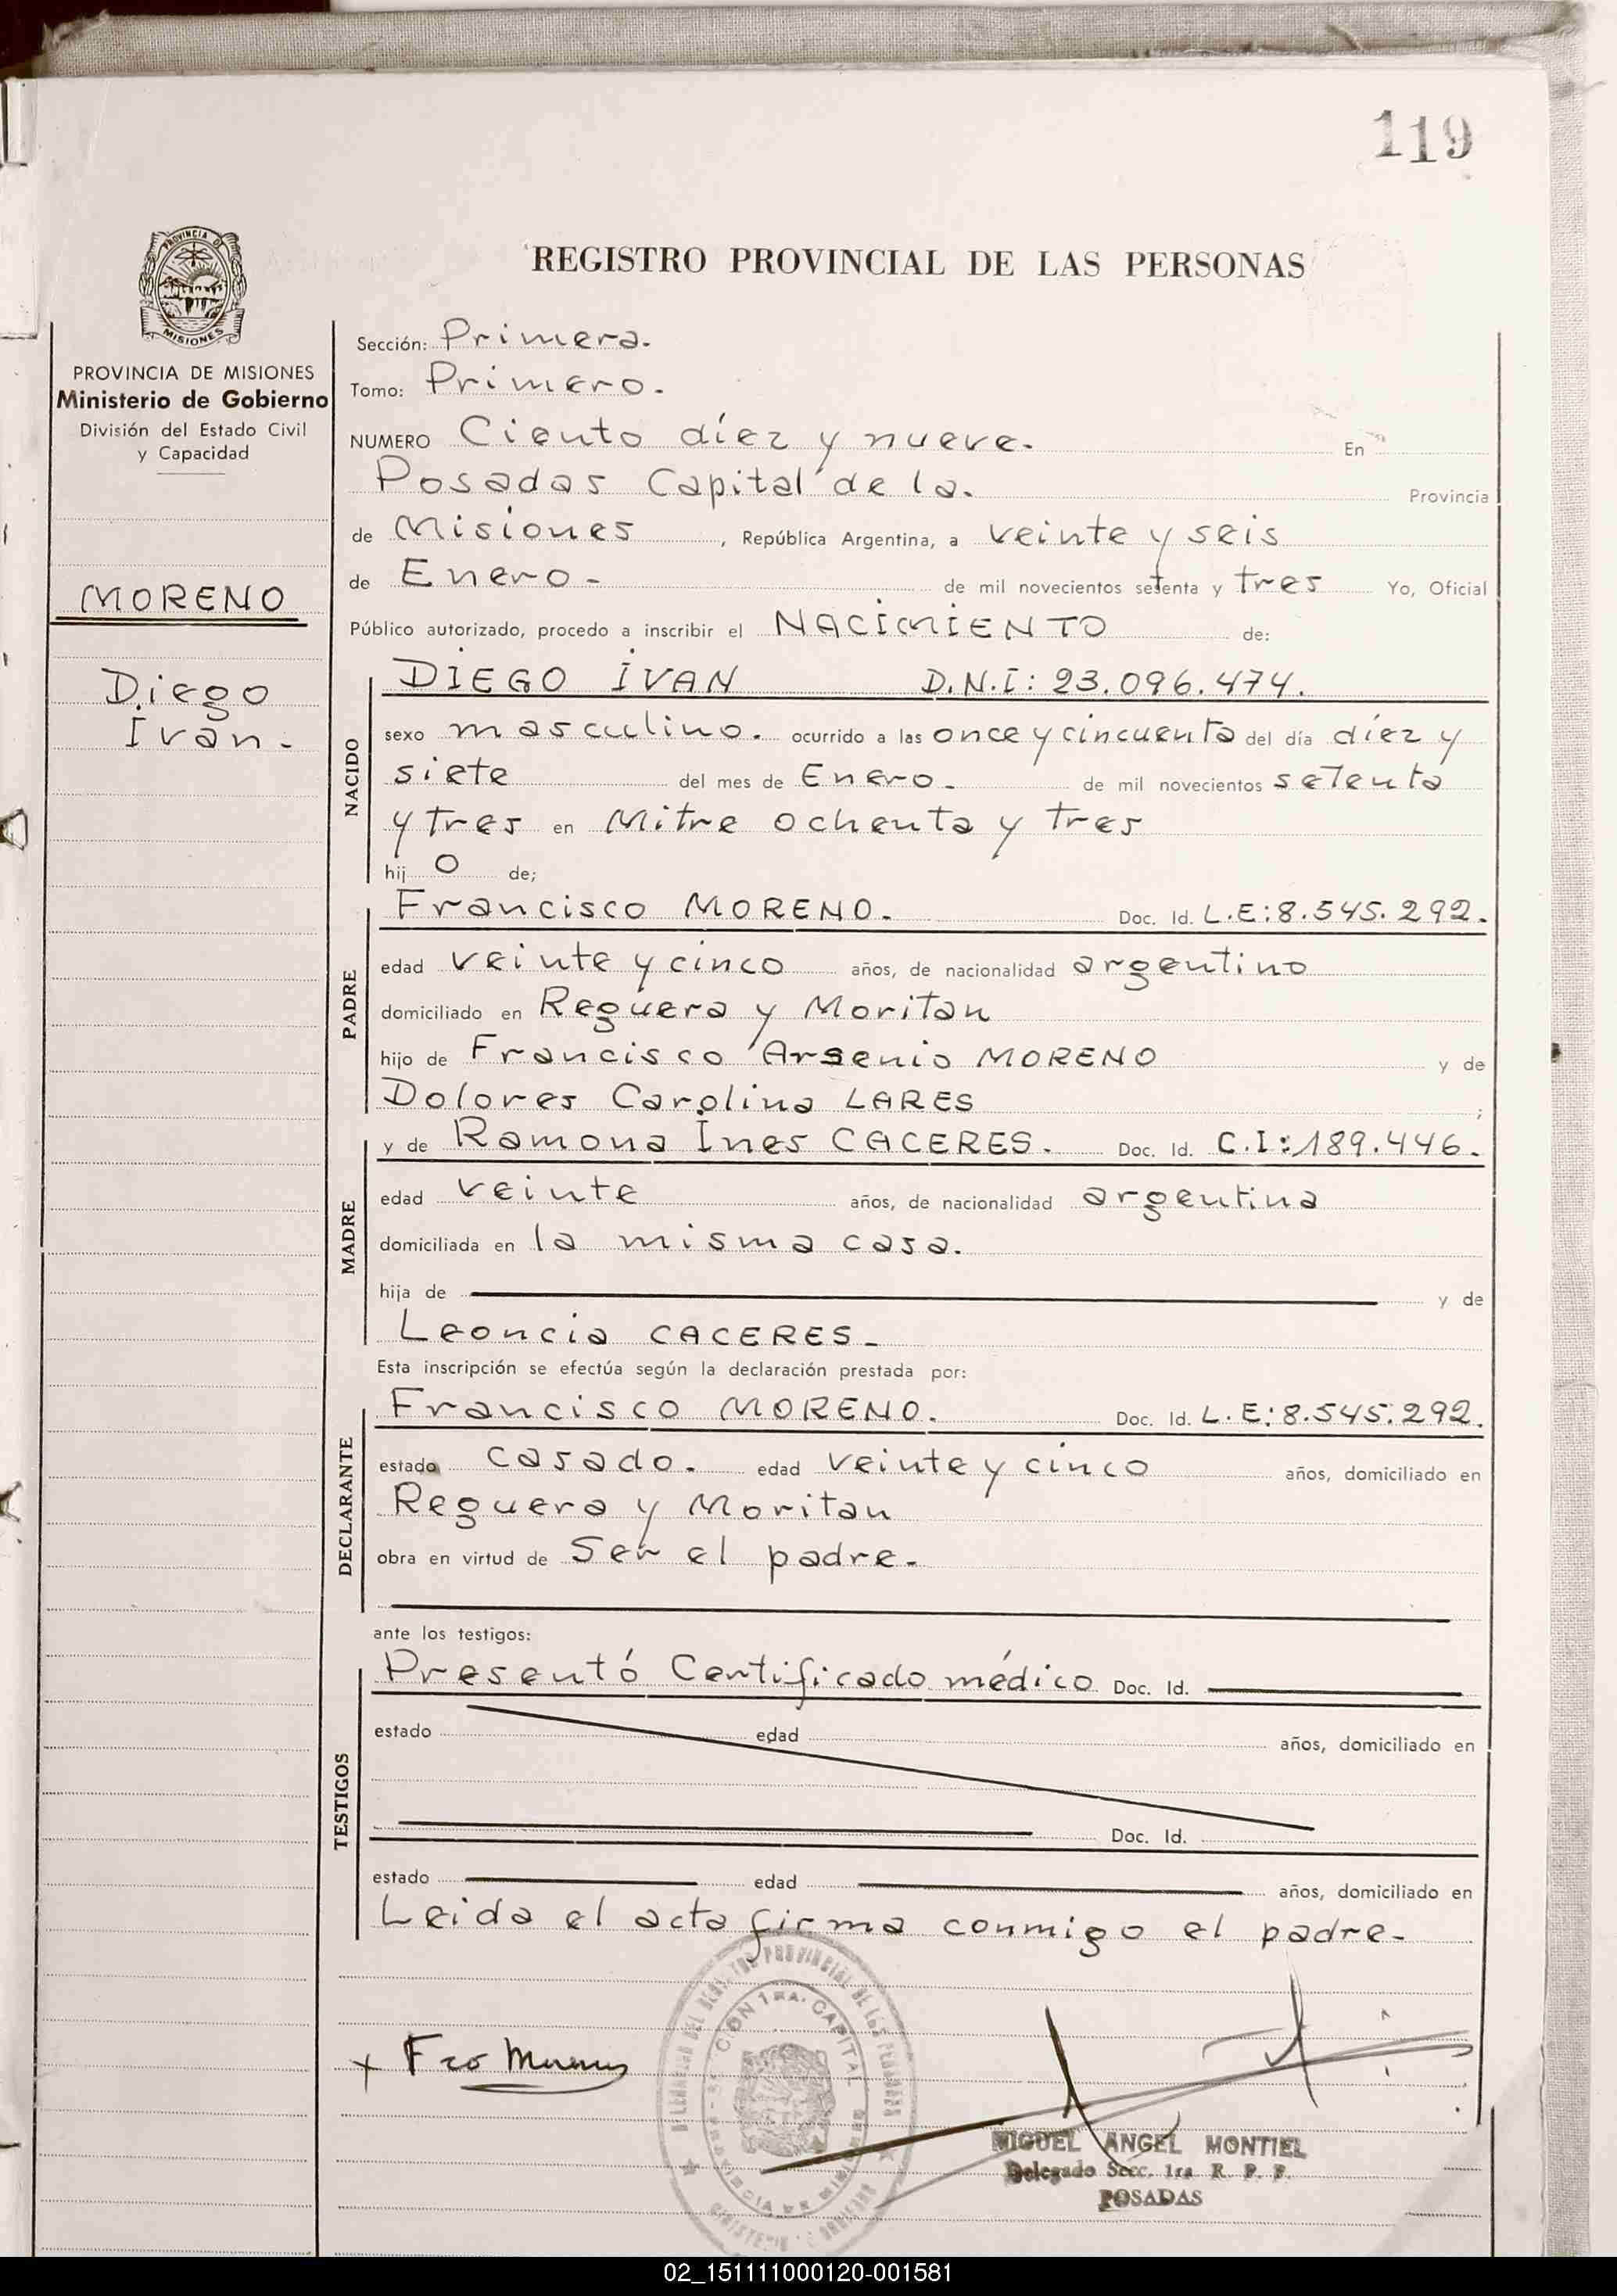 119
PROVINCIA DE
MISIONES
REGISTRO PROVINCIAL DE LAS PERSONAS
PROVINCIA DE MISIONES
Ministerio de Gobierno
División del Estado Civil
y Capacidad
MORENO
Diego
Ivan.
Sección: Primera.
Tomo: Primero.
NUMERO Ciento díez y nueve. En
Posadas Capital de la. Provincia
de Misiones , República Argentina, a veinte y seis
de Enero. de mil novecientos setenta y tres Yo, Oficial
Público autorizado, procedo a inscribir el NACIMIENTO de:
NACIDO
DIEGO IVAN D.N.I: 23.096.474.
sexo masculino. ocurrido a las once y cincuenta del día díez y
siete del mes de Enero. de mil novecientos setenta
y tres en Mitre ochenta y tres
hij o de;
PADRE
Francisco MORENO. Doc. Id. L.E: 8.545.292.
edad veinte y cinco años, de nacionalidad argentino
domiciliado en Reguera y Moritan
hijo de Francisco Arsenio MORENO y de
Dolores Carolina LARES ;
MADRE
y de Ramona Ines CACERES. Doc. Id. C.I: 189.446.
edad veinte años, de nacionalidad argentina
domiciliada en la misma casa.
hija de y de
Leoncia CACERES.
Esta inscripción se efectúa según la declaración prestada por:
DECLARANTE
Francisco MORENO. Doc. Id. L.E: 8.545.292.
estado casado. edad veinte y cinco años, domiciliado en
Reguera y Moritan
obra en virtud de Ser el padre.
ante los testigos:
TESTIGOS
Presentó Certificado médico Doc. Id.
estado edad años, domiciliado en
Doc. Id.
estado edad años, domiciliado en
Leida el acta firma conmigo el padre.
x Fco Moreno
MIGUEL ANGEL MONTIEL
Delegado Secc. 1ra R. P. P.
POSADAS
02_151111000120-001581